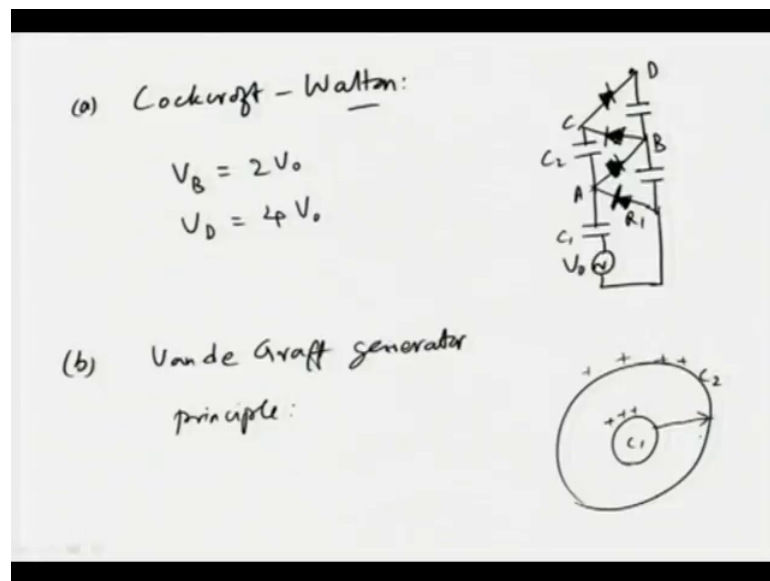 (a) Cockcroft - Walton:
V_B = 2 V_0
V_D = 4 V_0
D
C
B
C_2
A
R_1
C_1
V_0
(b) Van de Graft generator
principle:
+ + + +
C_2
+ + +
C_1